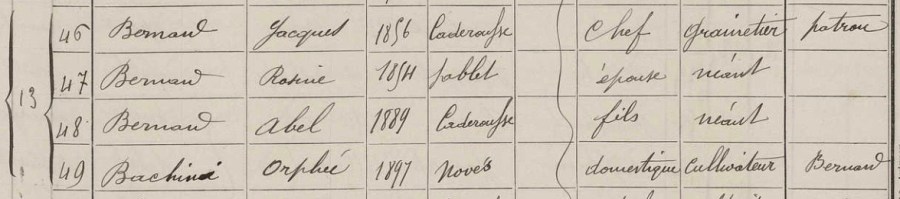 46 Bernard Jacques 1856 Caderousse Chef grainetier patron
47 Bernard Rosine 1854 Sablet épouse néant
13
48 Bernard Abel 1889 Caderousse fils néant
49 Orphée 1897 Novés domestique Cultivateur Bernard